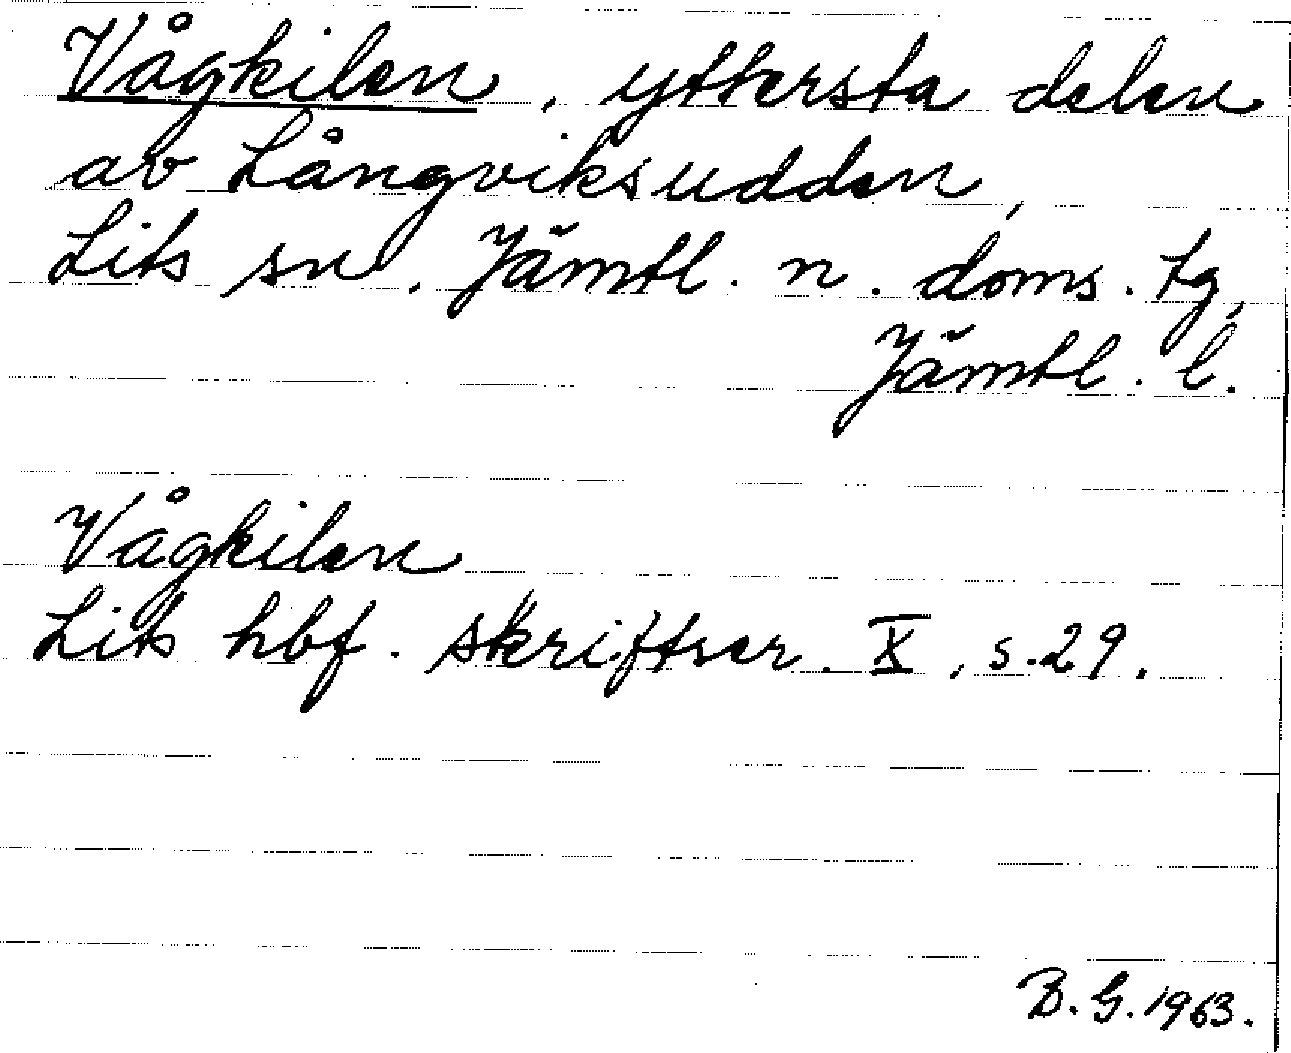 Vågkilen, yttersta delen
av Långviksudden,
Lits sn. Jämtl. n. doms. tg,
Jämtl. l.
Vågkilen
Lits hbf. skriftser. X, s. 29.
B. G. 1963.